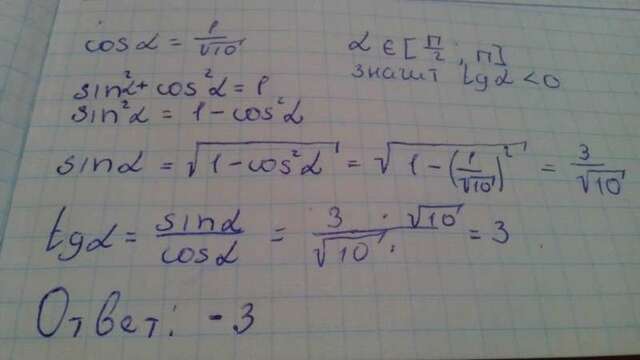 cos α = 1/√10   α ∈ [π/2 ; π]
значит tg α < 0
sin²α + cos²α = 1
sin²α = 1 - cos²α
sin α = √(1 - cos²α) = √(1 - (1/√10)²) = 3/√10
tg α = sin α/cos α = 3/√10 · √10 = 3
Ответ: -3